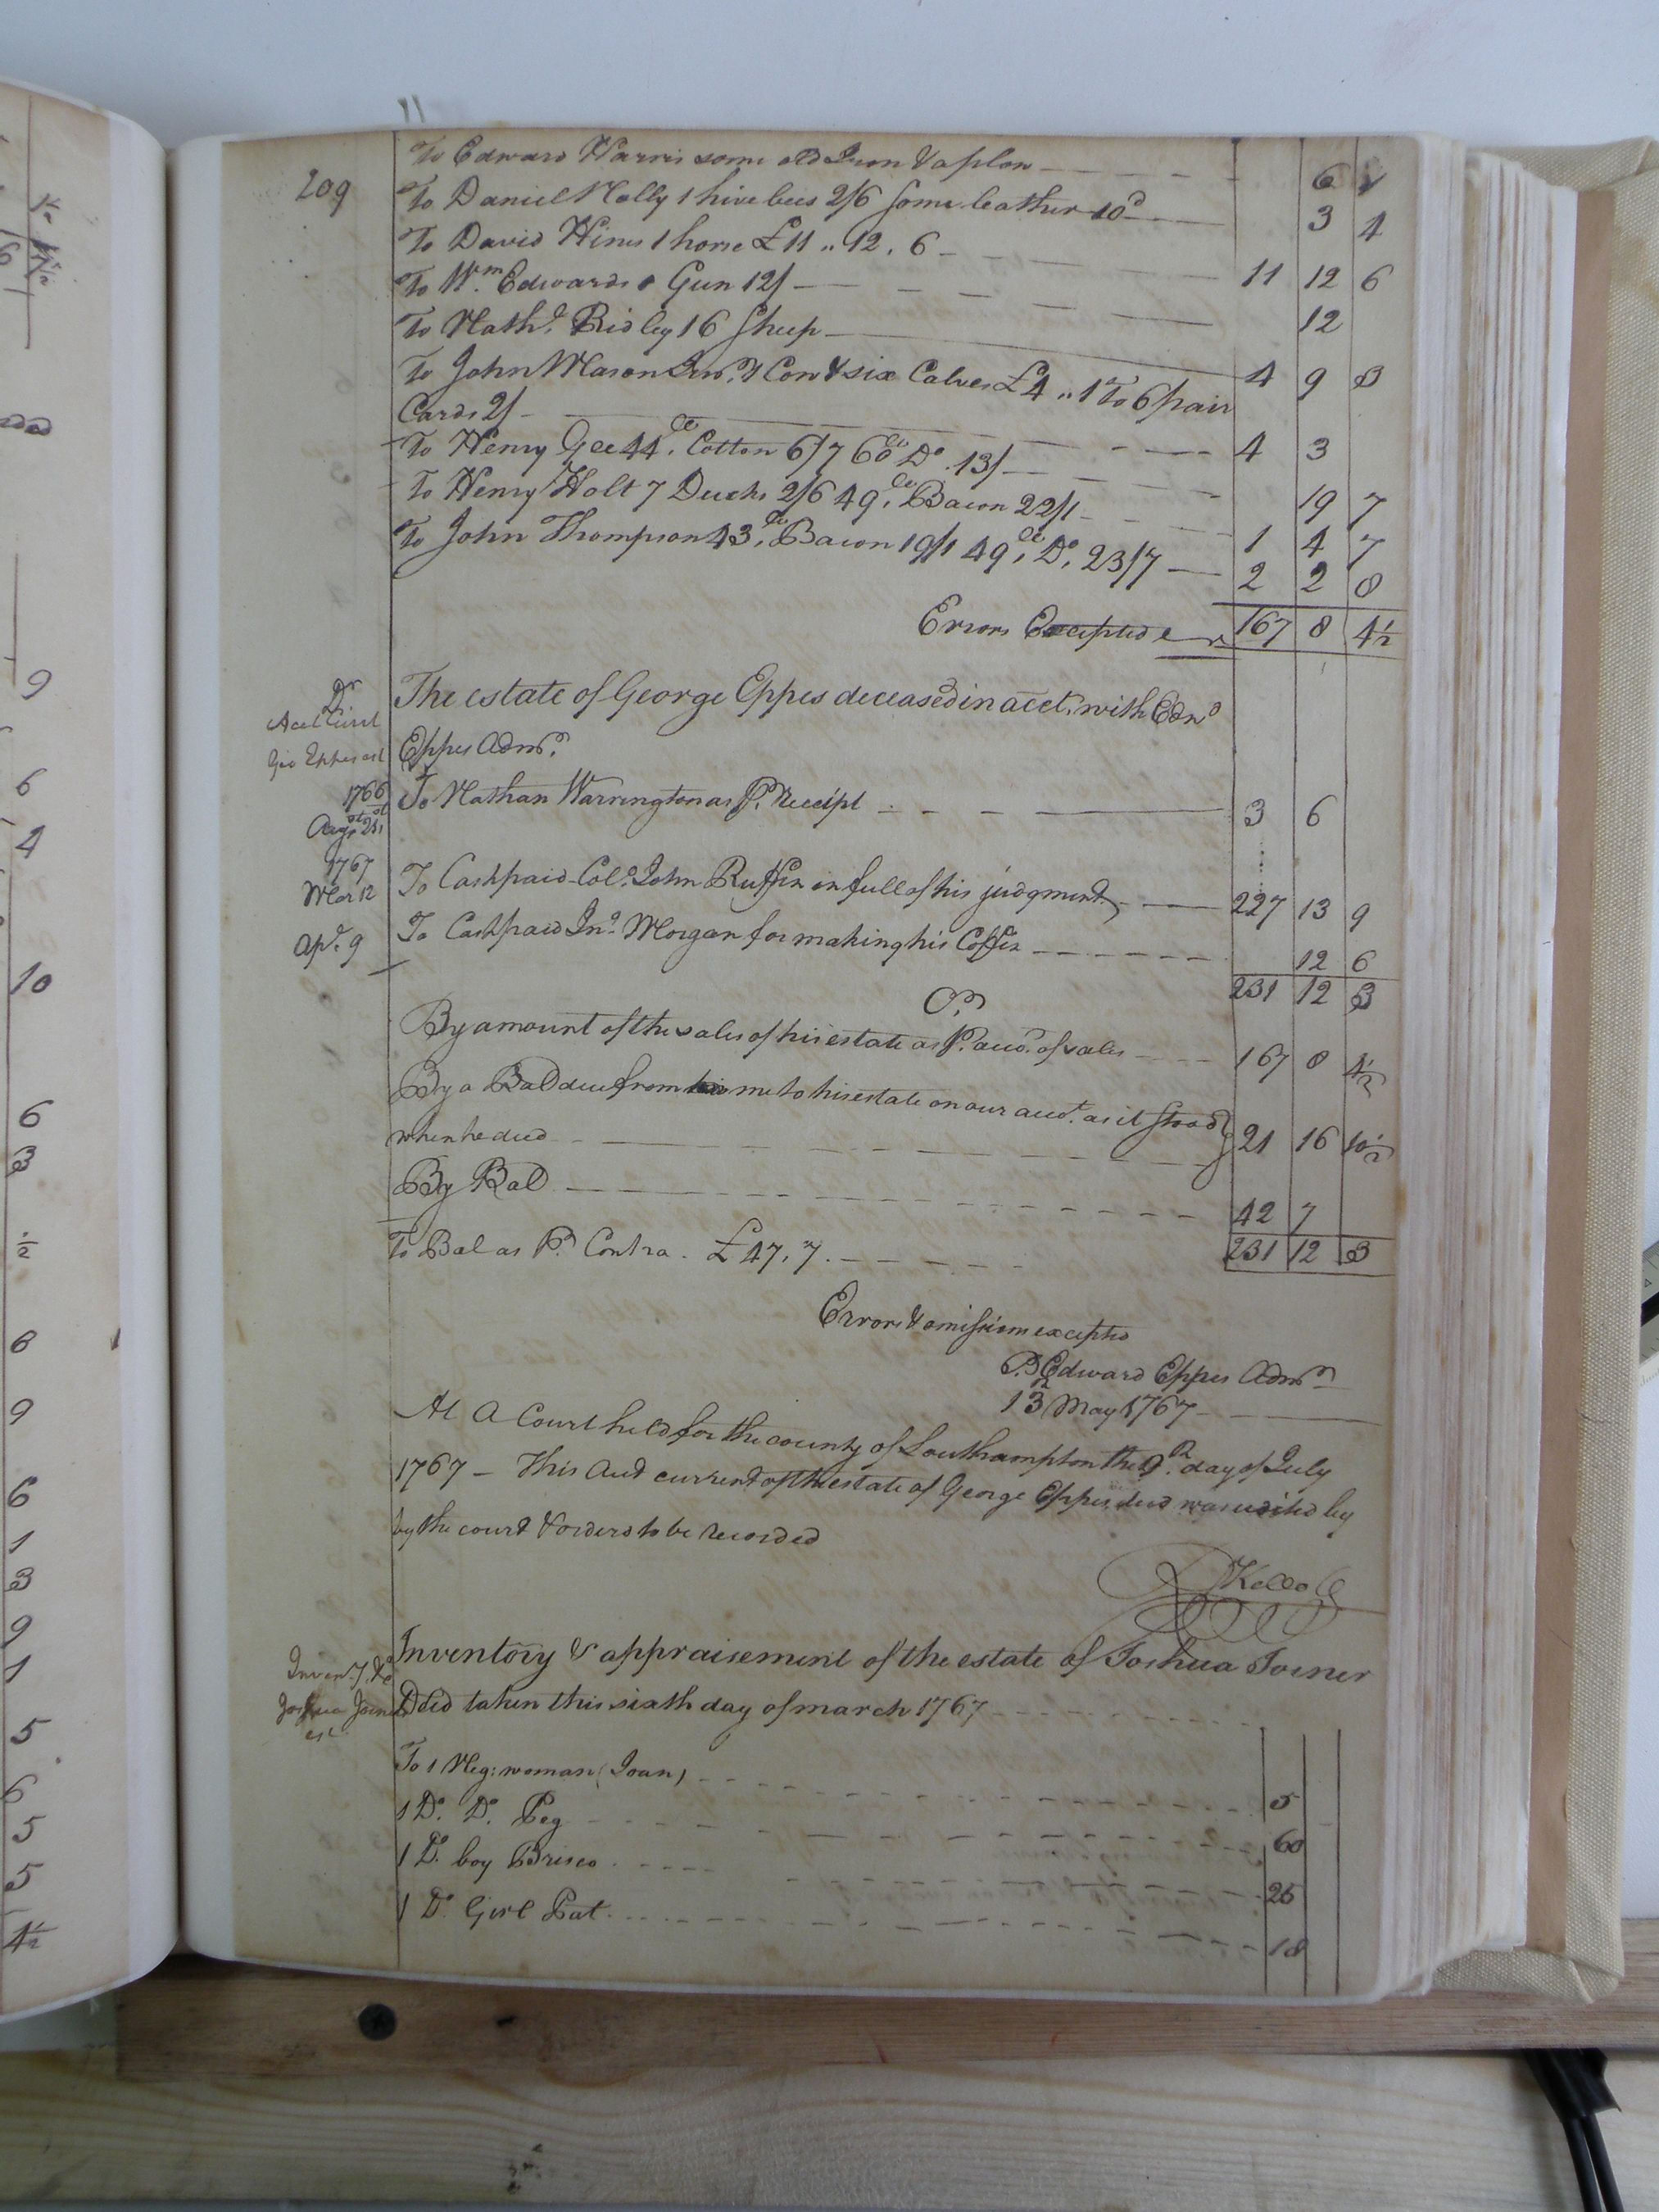 209
To Edward Harris some old Iron & aplon 6
To Daniel Holly 1 hive bees 2/6 some leather 10d 3 4
To David Hines 1 horse £11 .. 12 . 6 11 12 6
To Wm. Edwards Gun 12/ 12
To Nathl. Ridley 16 Sheep 4 9 3
To John Mason Cow & six Calves £4 .. 1 To 6 pair
Cards 2/ 4 3
To Henry Gee 44 Cotton 6/7 60 Do. 13/ 19 7
To Henry Holt 7 Ducks 2/6 49 Bacon 22/1 1 4 7
To John Thompson 43 Bacon 19/1 49 Do. 23/7 2 2 8
Errors Excepted 167 8 4½
Dr The estate of George Eppes deceased in acct. with Edwd
Eppes Admr.
1766
To Nathan Warrington as Pr. Receipt 3 6
1767
Mar 12 To Cash paid Colo. John Ruffin in full of his judgment 227 13 9
Apl. 9 To Cash paid Jno. Morgan for making his Coffin 12 6
231 12 3
Cr.
By amount of the sales of his estate as Pr. acct. of sales 167 8 4½
By a Bal due from me to his estate on our acct. as it stood
when he died 21 16 10½
By Bal 42 7
231 12 3
To Bal as Pr Contra. £47,7.
Errors & omissions excepted
Pr Edward Eppes Admr
13 May 1767
At A Court held for the county of Southampton the 9th. day of July
1767 – This Acct current of the estate of George Eppes decd was by
by the court & orderd to be recorded
R Kello C
Inventory & appraisement of the estate of Joshua Joiner
Decd taken this sixth day of march 1767
Joshua Joiner
est
To 1 Neg: woman (Joan) 5
1 Do. Do. Peg 60
1 Do. boy Brisco 25
1 Do Girl Pat 18